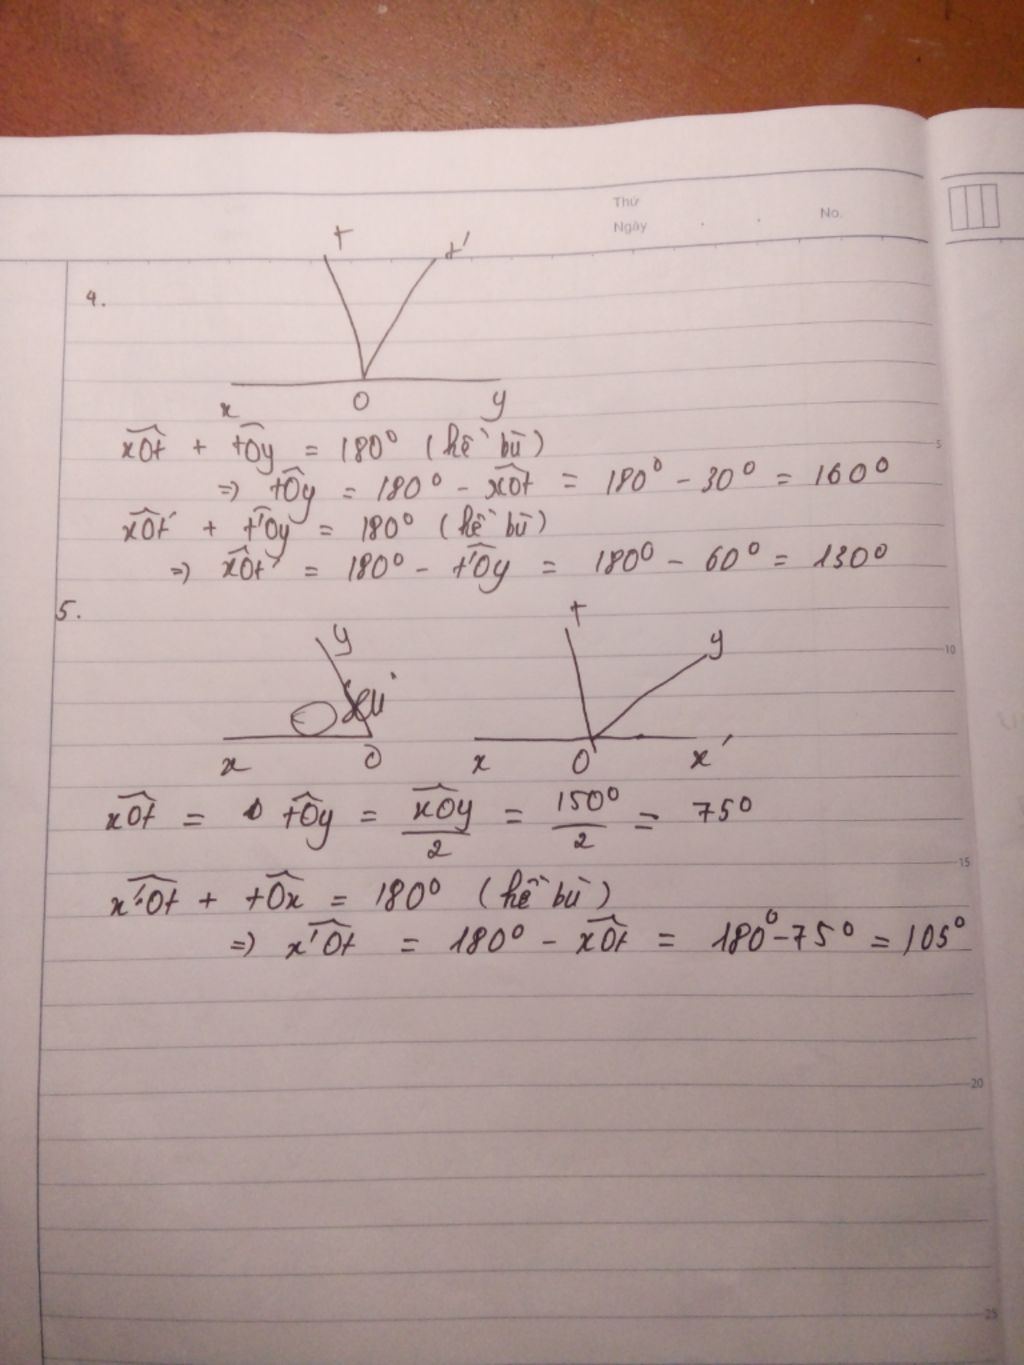 Thứ
Ngày . . No.
t t'
4.
x O y
xOt + tOy = 180° (kề bù)
=> tOy = 180° - xOt = 180° - 30° = 160°
xOt' + t'Oy = 180° (kề bù)
=> xOt' = 180° - t'Oy = 180° - 60° = 130°
5
5.
y t y
10
x O x O x'
xOt = tOy = xOy/2 = 150°/2 = 75°
15
x'Ot + tOx = 180° (kề bù)
=> x'Ot = 180° - xOt = 180° - 75° = 105°
20
25